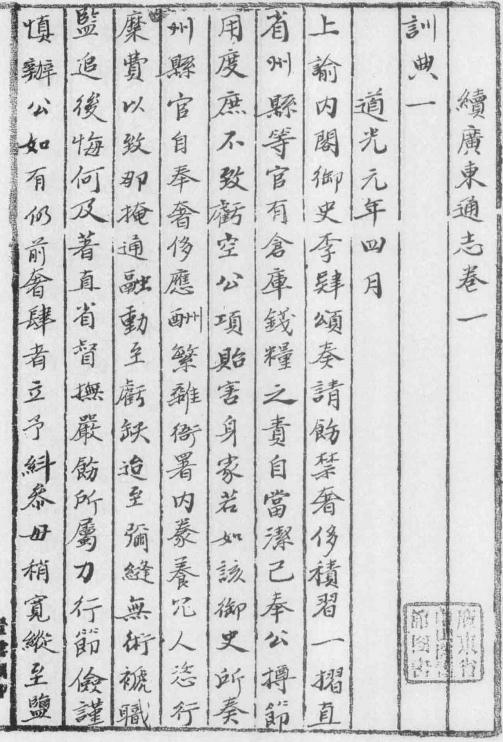 續廣東通志卷一
訓典一
道光元年四月
上諭内閣御史李肄頌奏請飭禁奢侈積習一摺直
省州縣等官有倉庫錢糧之責自當潔己奉公撙節
用度庶不致虧空公項貽害身家若如該御史所奏
州縣官自奉奢侈應酬繁雜衙署内豢養冗人恣行
糜費以致那掩通融動至虧缺迨至彌縫無術褫職
監追後悔何及著直省督撫嚴飭所屬力行節儉謹
慎辦公如有仍前奢肆者立予糾叅毋稍寬縱至鹽
廣東省
中山圖書
館圖書